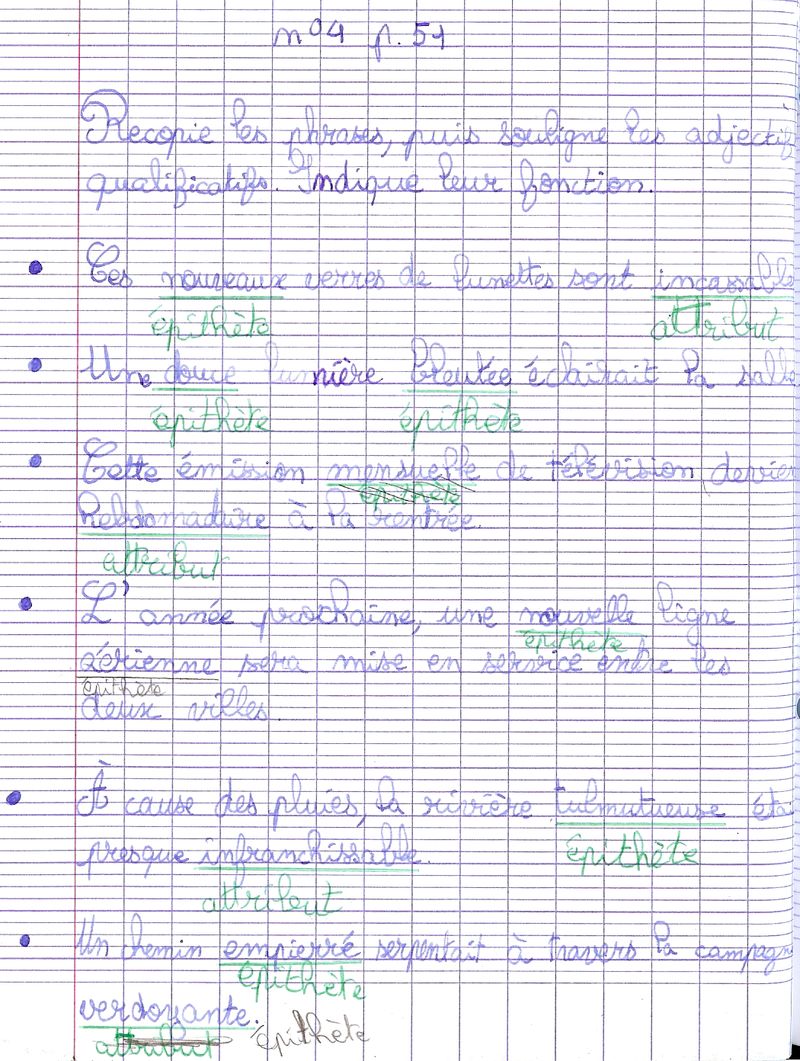 n°4 p. 51
Recopie les phrases, puis souligne les adjectifs
qualificatifs. Indique leur fonction.
Ces nouveaux verres de lunettes sont incassable
épithète attribut
Une douce lumière bleutée éclairait la salle
épithète épithète
Cette émission mensuelle de télévision devien
épithète
hebdomadaire à la rentrée.
attribut
L'année prochaine, une nouvelle ligne
épithète
aérienne sera mise en service entre les
épithète
deux villes.
À cause des pluies, la rivière tulmutueuse éta
presque infranchissable. épithète
attribut
Un chemin empierré serpentait à travers la campagn
épithète
verdoyante.
attribut épithète